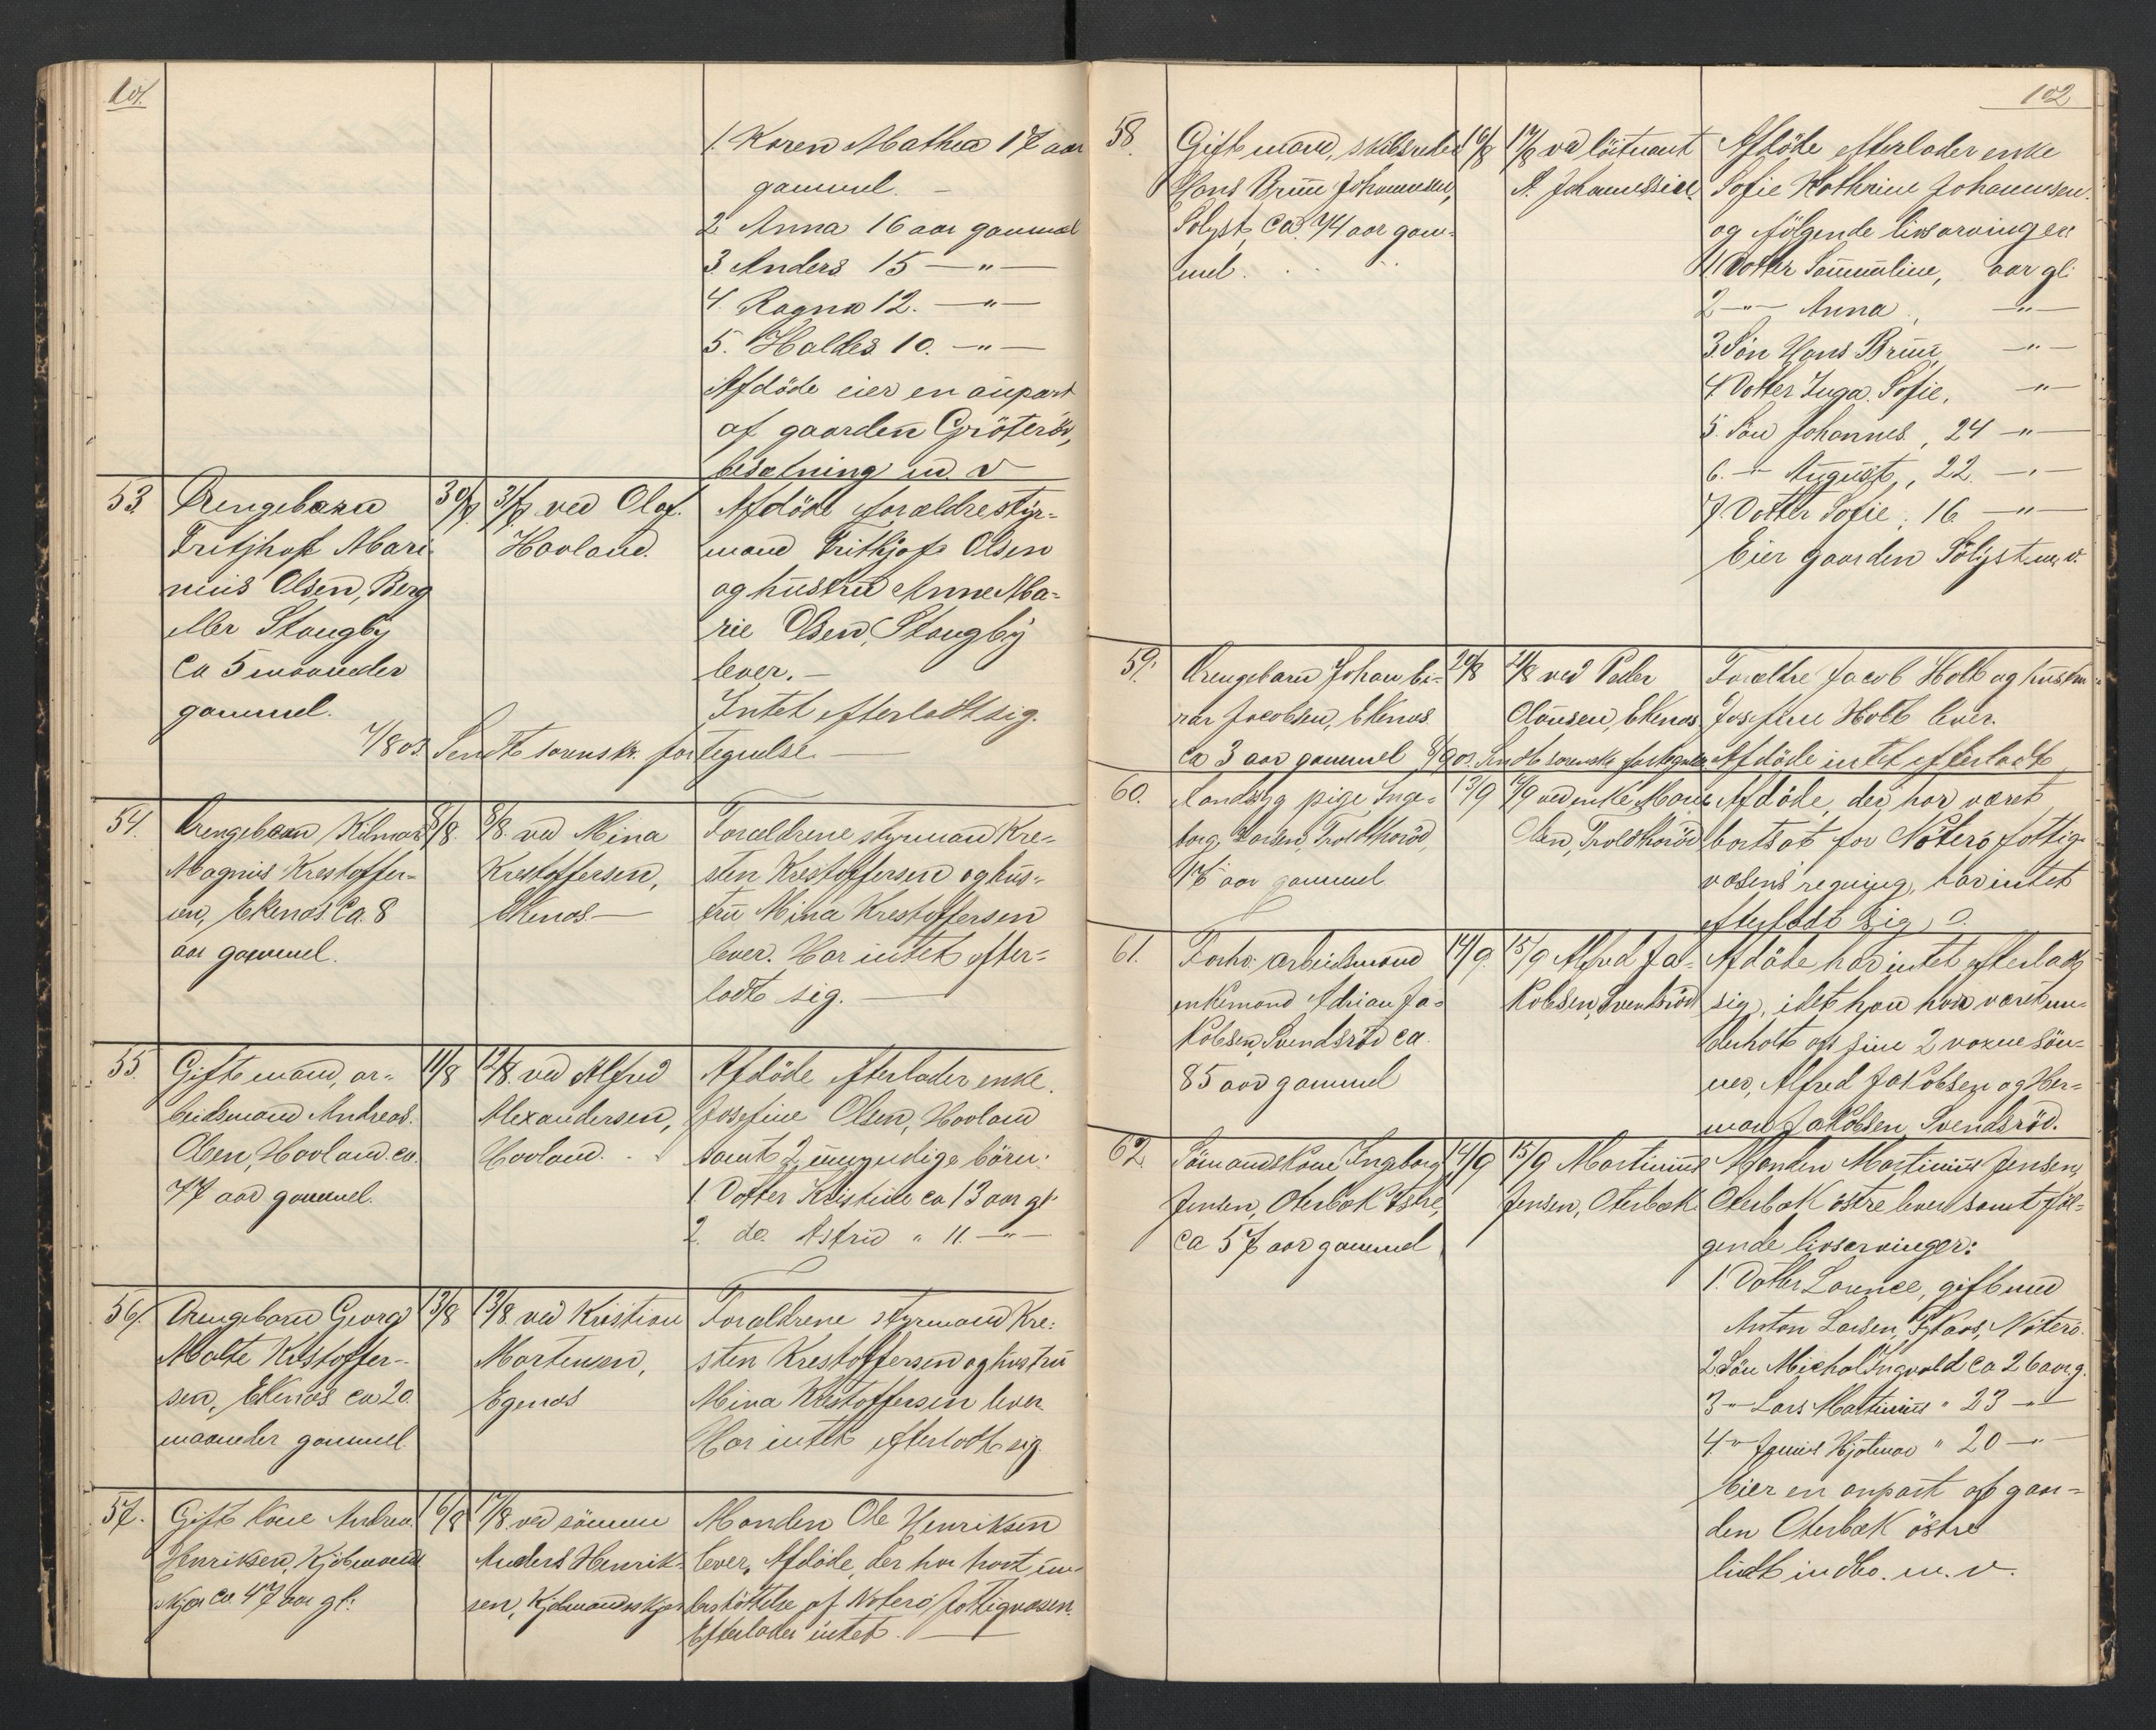 101.
1. Karen Mathea 17 aar
gammel. –
2. Anna 16 aar gammel
3. Anders 15 —"—
4. Ragna 12. —"—
5. Haldis 10. —"—
Afdöde eier en anpart
af gaarden Gröteröd,
besætning m. v
53. Drengebarn
Fritjhof Mari
nius Olsen, Berg
eller Stangeby
ca 5 maaneder
gammel.
30/7
31/7 ved Olaf
Havland.
Afdöde forældre styr-
mand Frithjofs Olsen
og hustru Anne Ma-
rie Olsen, Stangeby
lever. –
Intet efterladt sig.
7/8 03. Sendt sorenskr. fortegnelse
54. Drengebarn Hilmar
Magnus Krestoffer-
sen, Ekenæs. Ca. 8
aar gammel.
8/8.
8/8. ved Mina
Krestoffersen,
Ekenæs —
Forældrene styrmand Kre-
sten Kristoffersen og hus-
tru Mina Krestoffersen
lever. Har intet efter-
ladt sig. —
55. Gift mand, ar-
beidsmand Andreas
Olsen, Havland. ca.
77 aar gammel.
11/8
12/8. ved Alfred
Alexandersen,
Havland. .
Afdöde efterlader enke
Josefine Olsen, Havland
samt 2 umyndige börn:
1. Datter Kristine ca 13 aar gl.
2. do. Astrid " 11. —"—
56. Drengebarn Georg
Malte Kristoffer-
sen, Ekenæs ca 20
maaneder gammel
13/8
13/8. ved Kristian
Martensen,
Egenæs
Forældrene styrmand Kre-
sten Krestoffersen og hustru
Mina Krestoffersen lever.
Har intet efterladt sig.
57. Gift kone Andrea
Henriksen, Kjöbmands
skjær ca 47 aar gl.
16/8
17/8. ved sönnen
Anders Henrik-
sen, Kjöbmandsskjær
Manden Ole Henriksen
lever. Afdöde, der har havt un-
derstöttelse af Nöterö fattigvæsen.
Efterlader intet. —
102
58. Gift mand, skibsreder
Hans Bruu Johannesen,
Solyst, ca. 74 aar gam-
mel.
16/8
17/8 ved löitnant
A. Johannessen.
Afdöde efterlader enke
Sofie Kathrine Johannesen.
og fölgende livsarvinger
1. Datter Sammeline, aar gl.
2 —"— Anna, —"—
3. Sön Hans Bruu, —"—
4. Datter Inga Sofie, —"—
5. Sön Johannes, 24 —"—
6. —"— August, 22. —"—
7. Datter Sofie, 16 —"—
Eier gaarden Sölyst m. v.
59. Drengebarn Johan Ei-
nar Jacobsen, Ekenæs
ca 3 aar gammel
20/8
21/8 ved Peder
Clausen, Ekenæs
Forældre Jacob Holt og hustru
Josefine Holt lever.
Afdöde intet efterladt
8/9 03. Sendt sorenskr. fortegnelse
60. Sandssyg pige Inge-
borg Larsen, Troldhoröd,
76 aar gammel
13/9
14/9 ved enke Marie
Olsen, Troldhoröd
Afdöde, der har været
bortsat for Nöterö fattig-
væsens regning, har intet
efterladt sig.
61. Forhv. arbeidsmand
enkemand Adrian Ja-
kobsen, Svendsröd ca.
85 aar gammel
14/9.
15/9 Alfred Ja-
kobsen, Svendsröd
Afdöde har intet efterladt
sig, idet han har været un-
derholt af sine 2 voxne sön-
ner, Alfred Jakobsen og Her-
man Jakobsen Svendsröd.
62. Sömandskone Ingeborg
Jensen, Oterbæk östre,
ca 57 aar gammel
14/9
15/9 Martinius
Jensen, Oterbæk.
Manden Martinius Jensen,
Oterbæk östre lever samt föl-
gende livsarvinger:
1. Datter Lorence, gift med
Anton Larsen, Nöterö.
2. Sön Michal Ingvald ca 26 aar g.
3 —"— Lars Martinius " 23 —"—
4 —"— Hjalmar " 20 —"—
Eier en anpart af gaar-
den Oterbæk östre
lidt indbo. m. v.